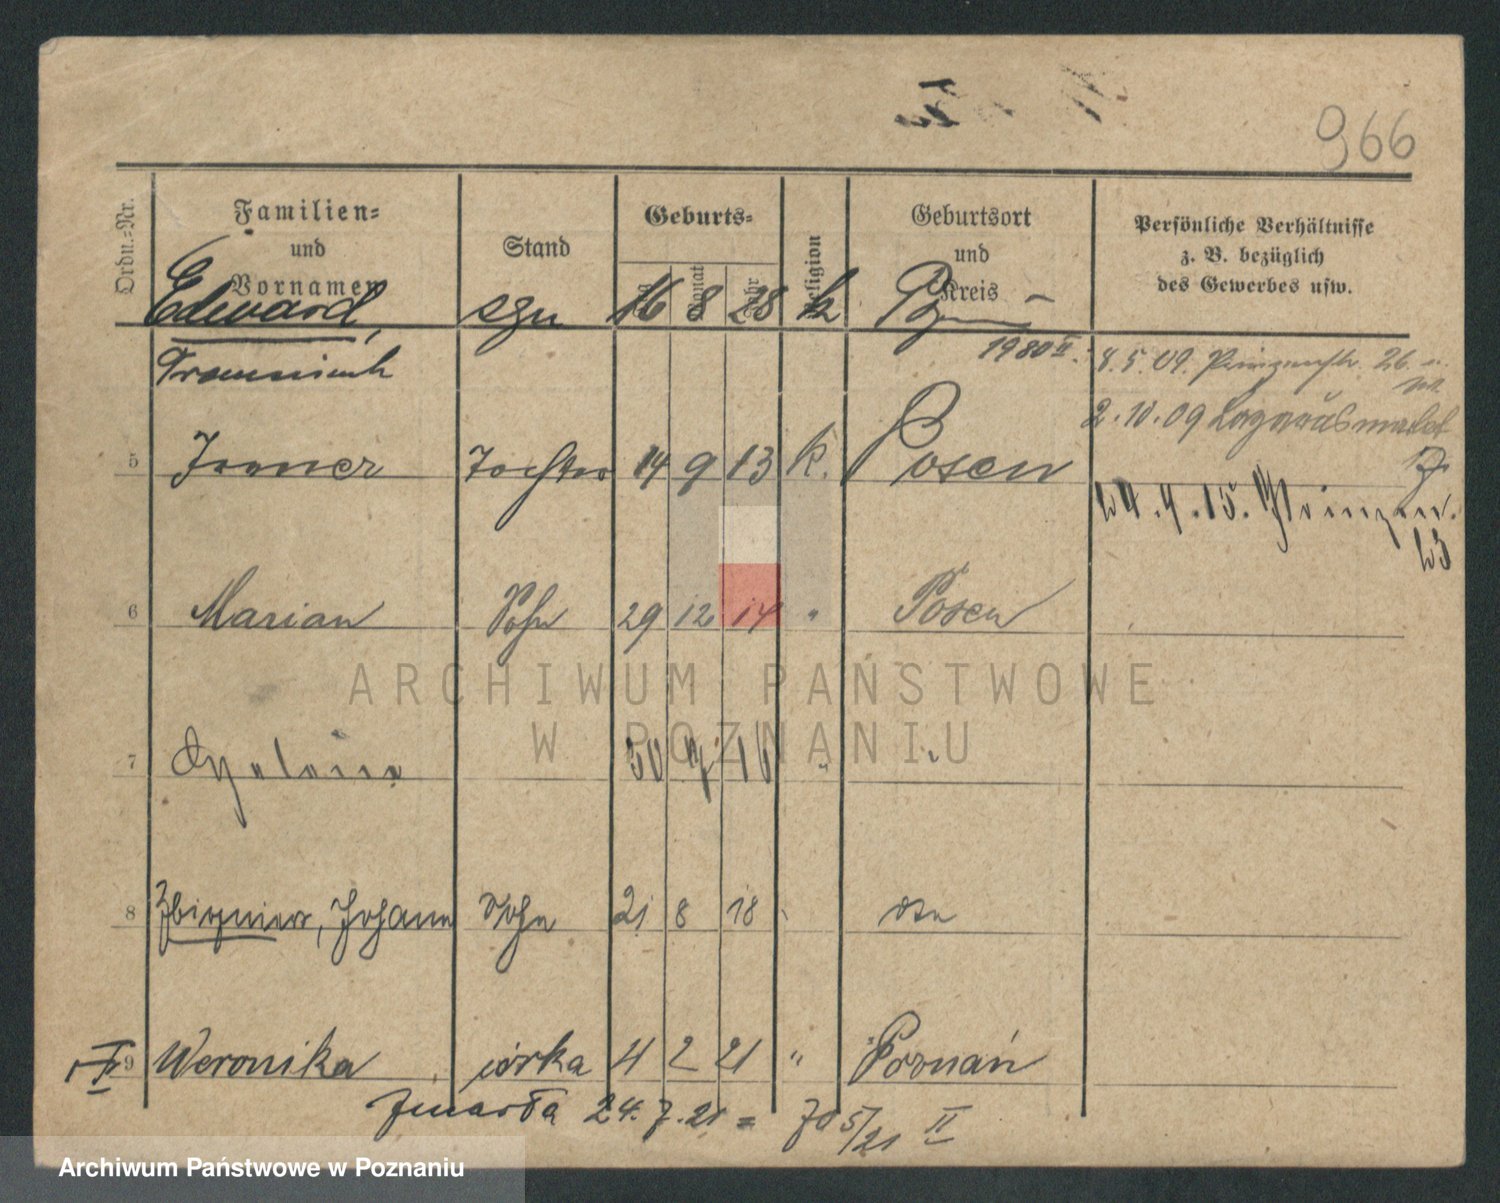 966
Ordn.-Nr.
Familien-
und
Vornamen
Stand
Geburts-
Religion
Geburtsort
und
Kreis
Persönliche Verhältnisse
z. B. bezüglich
des Gewerbes usw.
Edward, syn 16 8 28 k
Franciszek
1930 II.
8.5.09. 26
2.10.09 Lazarus
5 Tochter 14 9 13 k. Posen
24.4.15. Prinzen
23
6 Marian Sohn 29 12 14 " Posen
ARCHIWUM PAŃSTWOWE
W POZNANIU
7 30 7 16 "
8 Zbigniew, Johann Sohn 21 8 18
9 Weronika córka 4 2 21 " Poznań
zmarła 24.7.21 = 5/21 II
Archiwum Państwowe w Poznaniu